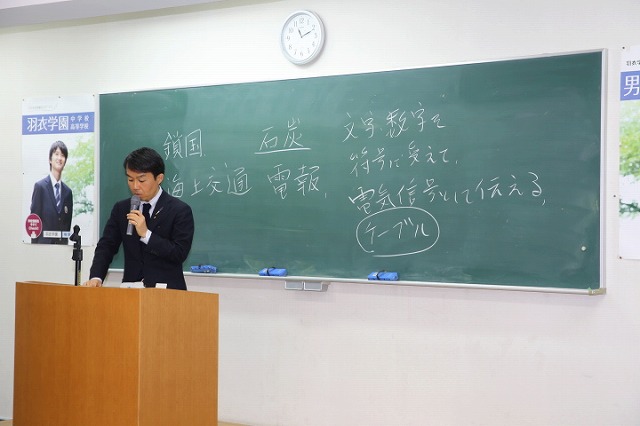 羽衣学園 中学校
高等学校
鎖国
海上交通
石炭
電報、
文字、数字を
符号に変えて、
電気信号として伝える、
ケーブル
羽衣学
男